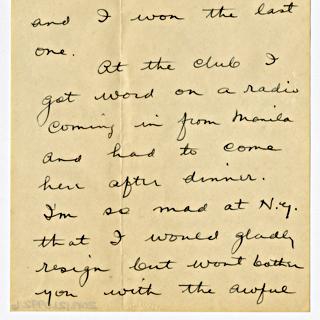 and I won the last
one.
At the club I
got word on a radio
coming in from Manila
and had to come
here after dinner.
I'm so mad at N.Y.
that I would gladly
resign but wont bother
you with the awful